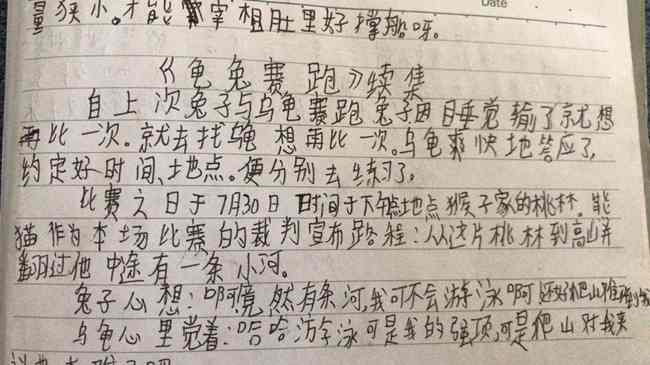 量狭小。才能宰相肚里好撑船呀。
Date
《龟兔赛跑》续集
自上次兔子与乌龟赛跑兔子因目垂觉输了就想
再比一次。就去找乌龟想再比一次。乌龟爽快地答应了,
约定好时间、地点。便分别去练习了。
比赛之日于7月30日 时间于下午 地点猴子家的桃林。熊
猫作为本场比赛的裁判宣布路程:从这片桃林到高山并
翻过他中途有一条小河。
兔子心想:啊竟然有条河,我可不会游泳啊还好爬山难
乌龟心里觉着:哈哈游泳可是我的强项,可是爬山对我来